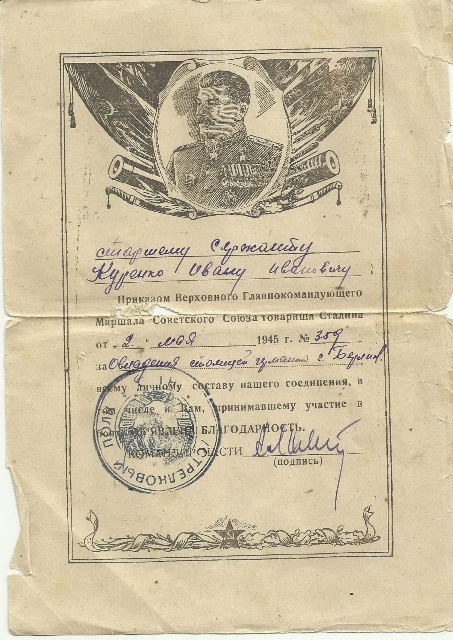 старшему сержанту
Куренко Ивану Ивановичу
Приказом Верховного Главнокомандующего
Маршала Советского Союза товарища Сталина
от „2“ мая 1945 г. № 359
за Овладения столицей германии г. Берлин.
всему личному составу нашего соединения, в
том числе и Вам, принимавшему участие в
ЯВЛЕНА БЛАГОДАРНОСТЬ.
КОМАНДИР ЧАСТИ
(подпись)
СТРЕЛКОВЫЙ ПОЛК